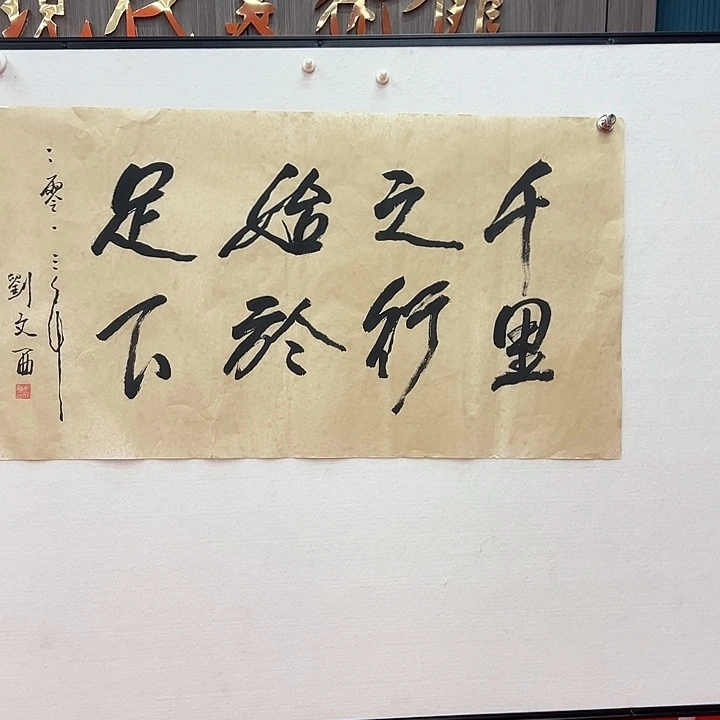 千里
之行
始於
足下
二零一三年
劉文西